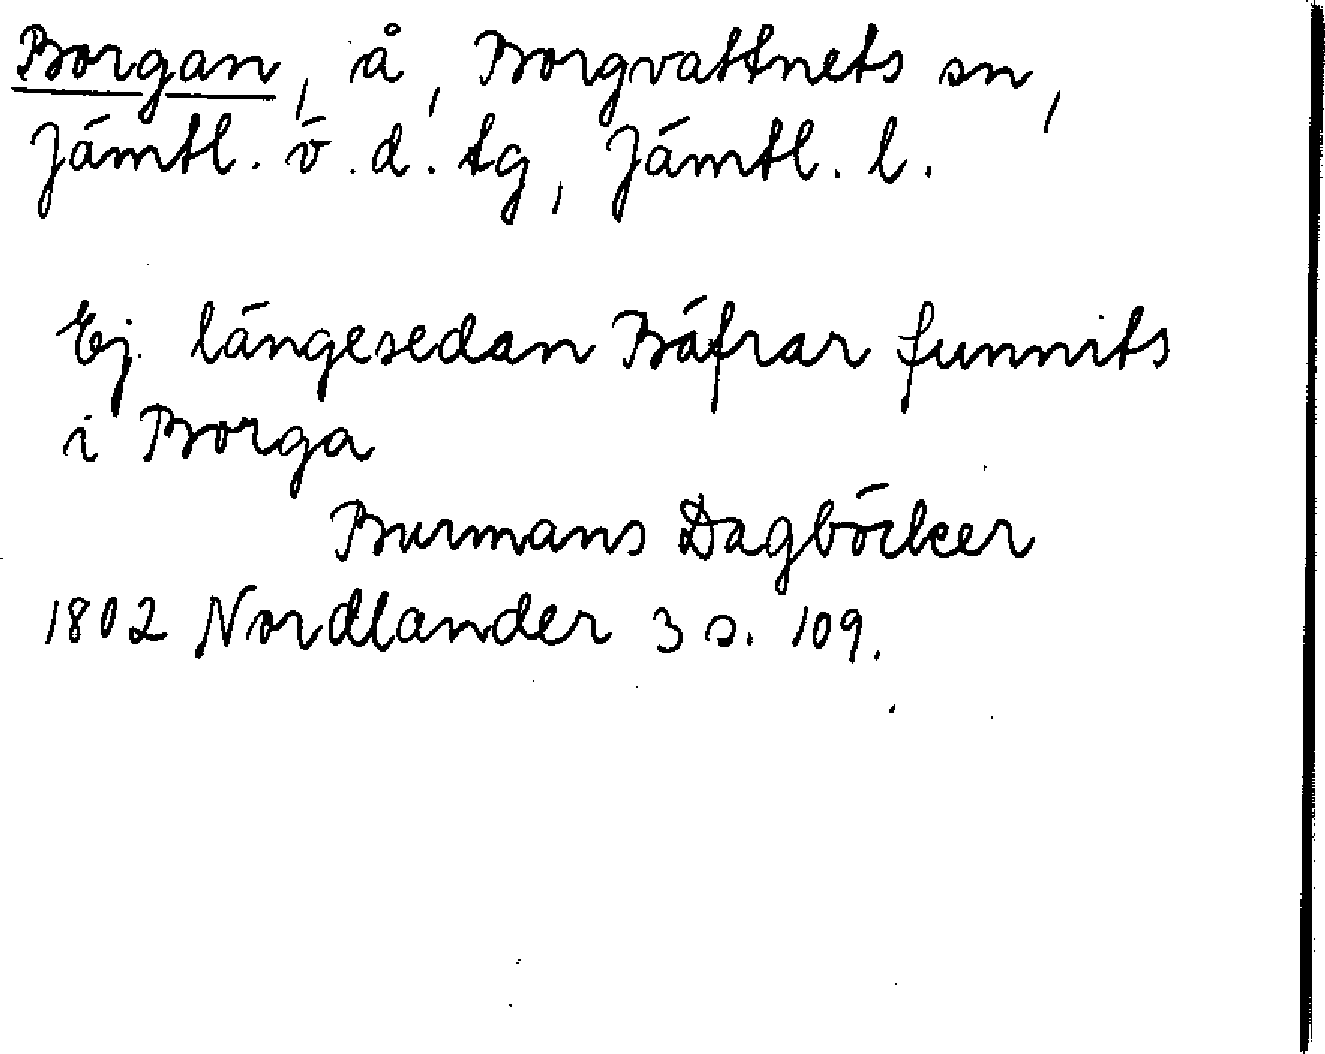 Borgan, å, Borgvattnets sn,
Jämtl. ö. d. tg, Jämtl. l.
Ej längesedan Bäfrar funnits
i Borga
Burmans Dagböcker
1802 Nordlander 3 s. 109.